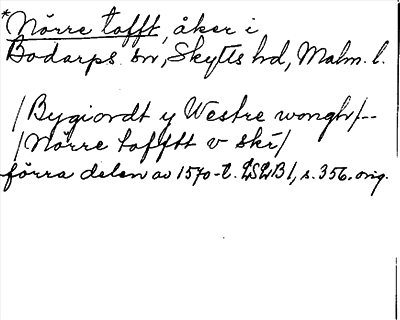 *Nörre tofft, åker i
Bodarps sn, Skytts hd, Malm. l.
/Bygiordt y Westre wongh/--
/Nörre tofftt v ski/
förra delen av 1570-t. LSLB 1, s. 356. orig.